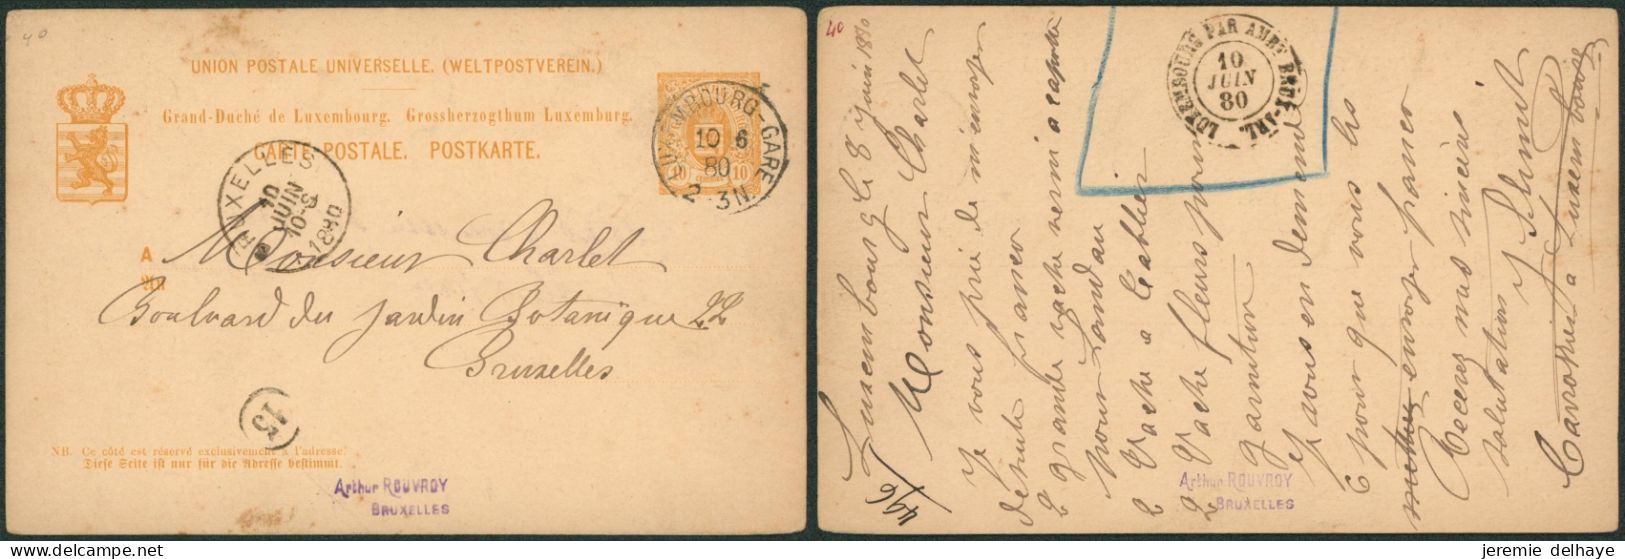 40
UNION POSTALE UNIVERSELLE. (WELTPOSTVEREIN.)
Grand-Duché de Luxembourg. Grossherzogthum Luxemburg.
CARTE POSTALE. POSTKARTE.
LUXEMBOURG-GARE
10 6
80
2-3N
10
BRUXELLES
10
JUIN
10-S
1880
A Monsieur Charlet
AN
Boulvard du jardin Botanique 22
Bruxelles
15
NB. Ce côté est réservé exclusivement à l'adresse.
Diese Seite ist nur für die Adresse bestimmt.
Arthur ROUVROY
BRUXELLES
40
LUXEMBOURG PAR AMBT BRUX-ARL.
10
JUIN
80
Luxembourg le 8 juin 1880
Monsieur Charlet
Je vous prie de m'envoyer
2 grande vache verni a capote
pour Landau
2 Vache a tablier
2 Vache fleurs pour
garniture
J vous en demend
6 pour que vous les
envoyer
Recevez mes sincères
salutation
Carrossier a Luxembourg
496
Arthur ROUVROY
BRUXELLES
jeremie delhaye